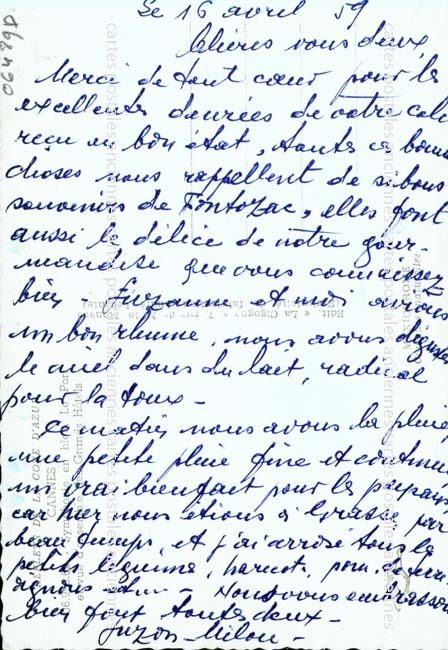 Le 16 avril 59
Chères vous deux,
Merci de tout cœur pour les
excellentes denrées de votre colis
reçu en bon état, toutes ces bonnes
choses nous rappellent de si bons
souvenirs de Fontozac, elles font
aussi le délice de notre gour-
mandise que vous connaissez
bien - Suzanne et moi avions
un bon rhume, nous avons dégusté
le miel dans du lait, radical
pour la toux -
Ce matin nous avons la pluie
une petite pluie fine et continue
un vrai bienfait pour les paysans
car hier nous étions à Grasse, par
beau temps, et j'ai arrosé tous les
petits légumes, haricots, pom. de terre
oignons etc - Nous vous embrassons
bien fort toutes deux -
Suzon - Milou -
06489P
RÉFLETS DE LA COTE D'AZUR
CANNES
Edit. « La Cigogne »
cartes-postales-anciennes